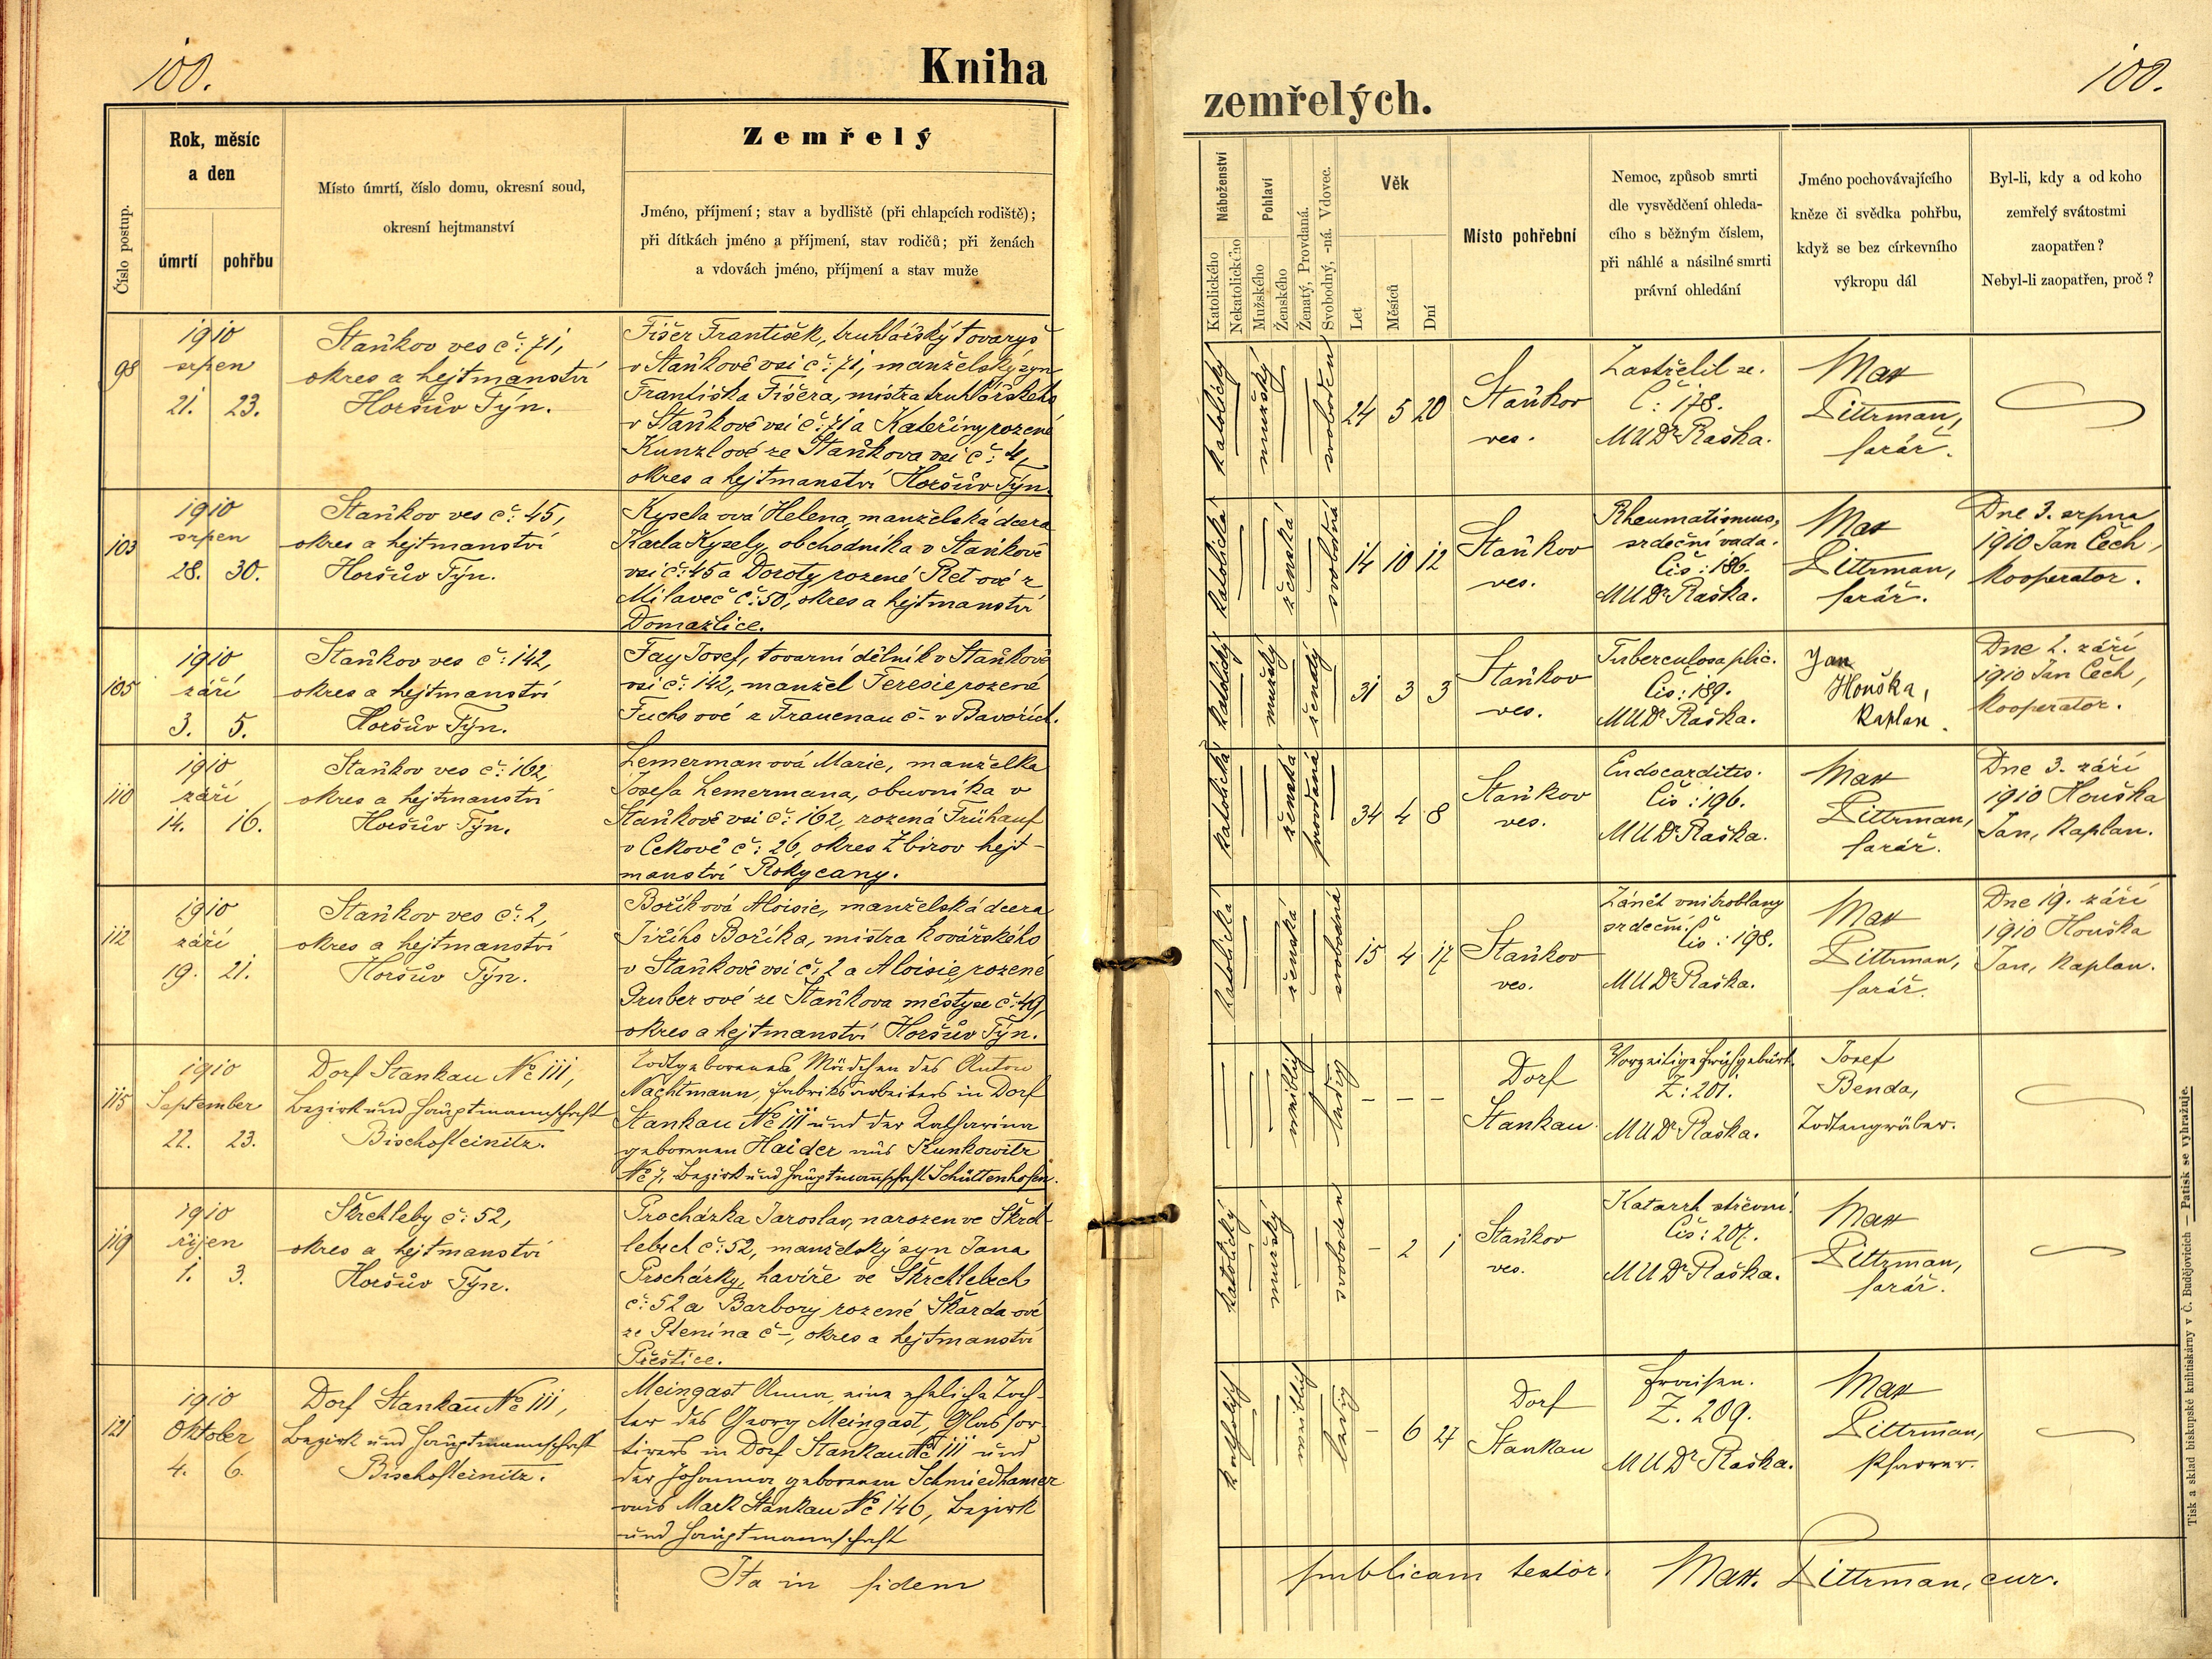 100.
Kniha
Číslo postup.
Rok, měsíc
a den
úmrtí
pohřbu
Místo úmrtí, číslo domu, okresní soud,
okresní hejtmanství
Zemřelý
Jméno, příjmení; stav a bydliště (při chlapcích rodiště);
při dítkách jméno a příjmení, stav rodičů; při ženách
a vdovách jméno, příjmení a stav muže
98
1910
srpen
21. 23.
Staňkov ves č: 71,
okres a hejtmanství
Horšův Týn.
Fišer František, truhlářský tovaryš
v Staňkově vsi č: 71, manželský syn
Františka Fišera, mistra truhlářského
v Staňkově vsi č: 71 a Kateřiny, rozené
Kunzlové ze Staňkova vsi č: 4,
okres a hejtmanství Horšův Týn.
103
1910
srpen
28. 30.
Staňkov ves č: 45,
okres a hejtmanství
Horšův Týn.
Kysela ová Helena, manželská dcera
Karla Kysely, obchodníka v Staňkově
vsi č: 45 a Doroty rozené Ret ové z
Milaveč č: 50, okres a hejtmanství
Domažlice.
105
1910
září
3. 5.
Staňkov ves č: 142,
okres a hejtmanství
Horšův Týn.
Fay Josef, tovarní dělník v Staňkově
vsi č: 142, manžel Teresie rozené
Fuchs ové z Frauenau č - v Bavořích.
110
1910
září
14. 16.
Staňkov ves č: 162,
okres a hejtmanství
Horšův Týn.
Lemerman ová Marie, manželka
Josefa Lemermana, obuvníka v
Staňkově vsi č: 162, rozená Frühauf
v Cekově č: 26, okres Zbirov hejt-
manství Rokycany.
112
1910
září
19. 21.
Staňkov ves č: 2,
okres a hejtmanství
Horšův Týn.
Boříková Aloisie, manželská dcera
Jiřího Boříka, mistra kovářského
v Staňkově vsi č: 2 a Aloisie, rozené
Gruber ové ze Staňkova městyse č: 49,
okres a hejtmanství Horšův Týn.
115
1910
September
22. 23.
Dorf Stankau No 111,
Bezirk und Hauptmannschaft
Bischofteinitz.
Todtgeborenes Mädchen des Anton
Nachtmann, Fabriksarbeiters in Dorf
Stankau No 111 und der Katharina
geborenen Haider aus Kunkowitz
No 7, Bezirk und Hauptmannschaft Schüttenhofen.
119
1910
říjen
1. 3.
Střchleby č: 52,
okres a hejtmanství
Horšův Týn.
Procházka Jaroslav, narozen ve
č: 52, manželský syn Jana
Procházky, havíře ve
č: 52 a Barbory rozené Škarda ové
ze Plenína č -, okres a hejtmanství
Přeštice.
121
1910
Oktober
4. 6.
Dorf Stankau No 111,
Bezirk und Hauptmannschaft
Bischofteinitz.
Meingast Anna, eine eheliche Toch-
ter des Georg Meingast, Glassor-
tirers in Dorf Stankau No 111 und
der Johanna geborenen Schmiedhamer
aus Mark Stankau No 146, Bezirk
und Hauptmannschaft
Ita in fidem
100.
zemřelých.
Náboženství
Katolického
Nekatolického
Pohlaví
Mužského
Ženského
Ženatý, Provdaná.
Svobodný, -ná. Vdovec.
Věk
Let
Měsíců
Dní
Místo pohřební
Nemoc, způsob smrti
dle vysvědčení ohleda-
cího s běžným číslem,
při náhlé a násilné smrti
právní ohledání
Jméno pochovávajícího
kněze či svědka pohřbu,
když se bez církevního
výkropu dál
Byl-li, kdy a od koho
zemřelý svátostmi
zaopatřen?
Nebyl-li zaopatřen, proč?
katolický
mužský
svoboden
24 5 20
Staňkov
ves.
Zastřelil se.
Č: 178.
MUDr Raška.
Max
Pittrman,
farář.
katolická
ženská
svobodná
14 10 12
Staňkov
ves.
Rheumatismus,
srdeční vada.
Čís: 186.
MUDr Raška.
Max
Pittrman,
farář.
Dne 3. srpna
1910 Jan Čech,
kooperator.
katolický
mužský
ženatý
31 3 3
Staňkov
ves.
Tuberculosa plic.
Čís: 189.
MUDr Raška.
Jan
Houška,
kaplan.
Dne 2. září
1910 Jan Čech,
kooperator.
katolická
ženská
provdaná
34 4 8
Staňkov
ves.
Endocarditis.
Čís: 196.
MUDr Raška.
Max
Pittrman,
farář.
Dne 3. září
1910 Houška
Jan, kaplan.
katolická
ženská
svobodná
15 4 17
Staňkov
ves.
Zánět vnitroblany
srdeční.
Čís: 198.
MUDr Raška.
Max
Pittrman,
farář.
Dne 19. září
1910 Houška
Jan, kaplan.
weiblich
ledig
- - -
Dorf
Stankau.
Vorzeitige Frühgeburt.
Z: 201.
MUDr Raška.
Josef
Benda,
Todtengräber.
katolický
mužský
svoboden
- 2 1
Staňkov
ves.
Katarrh střevní.
Čís: 207.
MUDr Raška.
Max
Pittrman,
farář.
katholisch
weiblich
ledig
- 6 27
Dorf
Stankau
Fraisen.
Z. 209.
MUDr Raška.
Max
Pittrman,
Pfarrer.
publicam testor. Max. Pittrman, cur.
Tisk a sklad biskupské knihtiskárny v Č. Budějovicích — Patisk se vyhražuje.